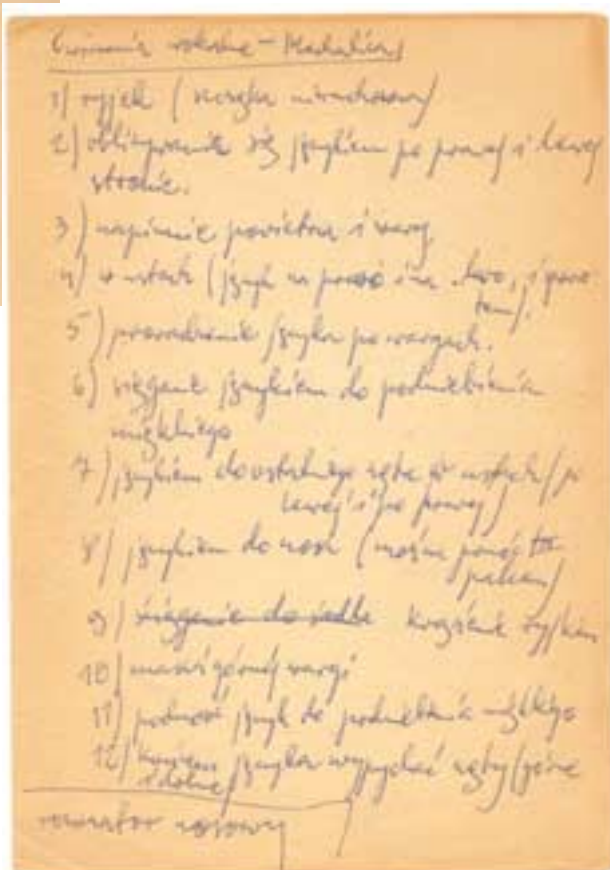 Ćwiczenia wokalne –
1) ryjek (szczęka nieruchoma)
2) oblizywanie się językiem po prawej i lewej
stronie.
3) napinanie powietrza i warg
4) w ustach (język na prawo i na lewo, i poza
5) prowadzenie języka po wargach.
6) sięganie językiem do podniebienia
miękkiego
7) językiem do ostatniego zęba w ustach (po
lewej i po prawej)
8) językiem do nosa (można pomóc
palcem)
9) sięganie do siebie krążenie ryjkiem
10) masaż górnej wargi
11) podnosić język do podniebienia miękkiego
12) końcem języka wypychać zęby (górne
i dolne)
rezonator nosowy